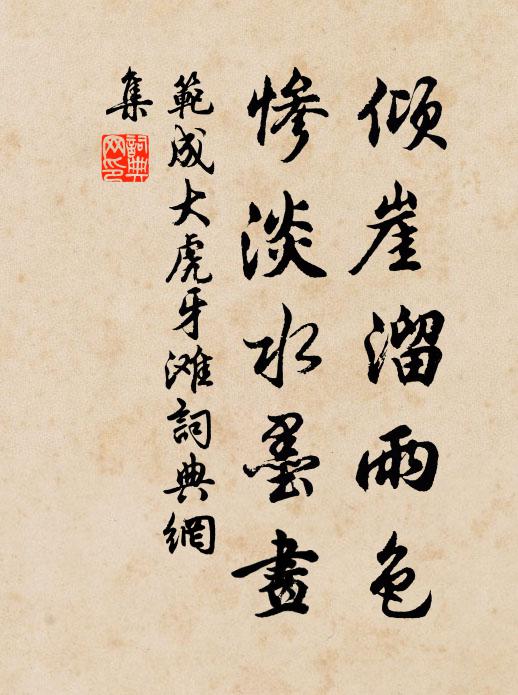 傾崖溜雨色
慘淡水墨畫
範成大虎牙滩詞典網
集
詞典
网印